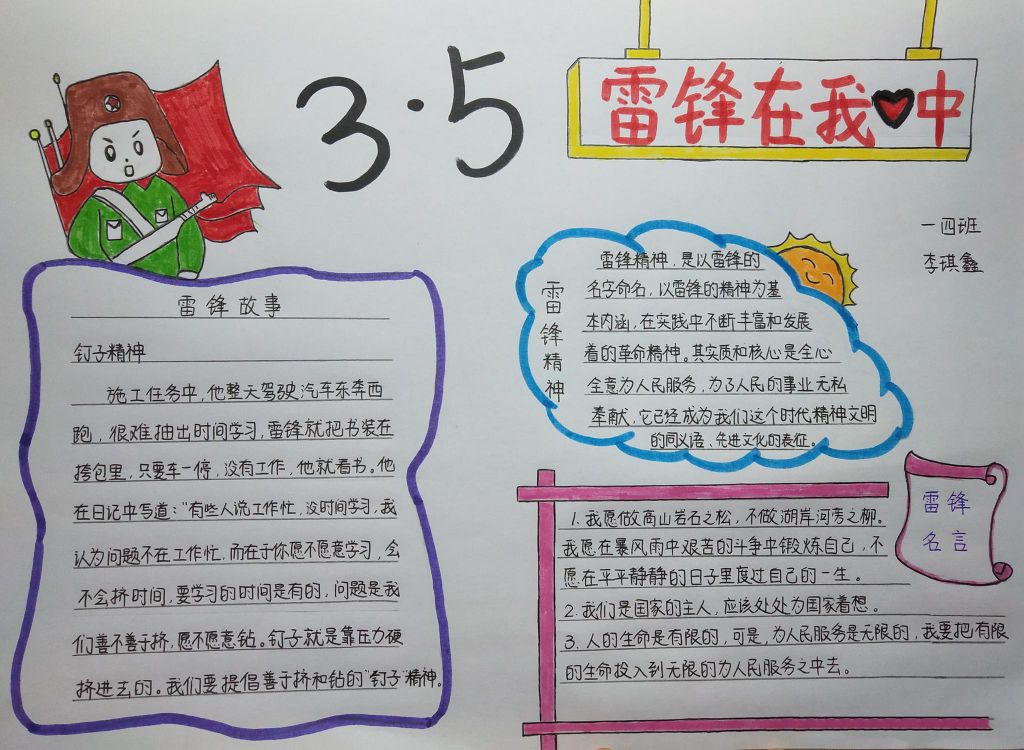 3·5
雷锋在我中
一四班
李琪鑫
雷锋故事
钉子精神
施工任务中，他整天驾驶汽车东奔西
跑，很难抽出时间学习，雷锋就把书装在
挎包里，只要车一停，没有工作，他就看书。他
在日记中写道：“有些人说工作忙，没时间学习，我
认为问题不在工作忙，而在于你愿不愿意学习，会
不会挤时间，要学习的时间是有的，问题是我
们善不善于挤，愿不愿意钻。钉子就是靠压力硬
挤进去的。我们要提倡善于挤和钻的“钉子”精神。
雷锋精神
雷锋精神，是以雷锋的
名字命名，以雷锋的精神为基
本内涵，在实践中不断丰富和发展
着的革命精神。其实质和核心是全心
全意为人民服务，为了人民的事业无私
奉献，它已经成为我们这个时代精神文明
的同义语、先进文化的表征。
雷锋
名言
1.我愿做高山岩石之松，不做湖岸河旁之柳。
我愿在暴风雨中艰苦的斗争中锻炼自己，不
愿在平平静静的日子里度过自己的一生。
2.我们是国家的主人，应该处处为国家着想。
3.人的生命是有限的，可是，为人民服务是无限的，我要把有限
的生命投入到无限的为人民服务之中去。